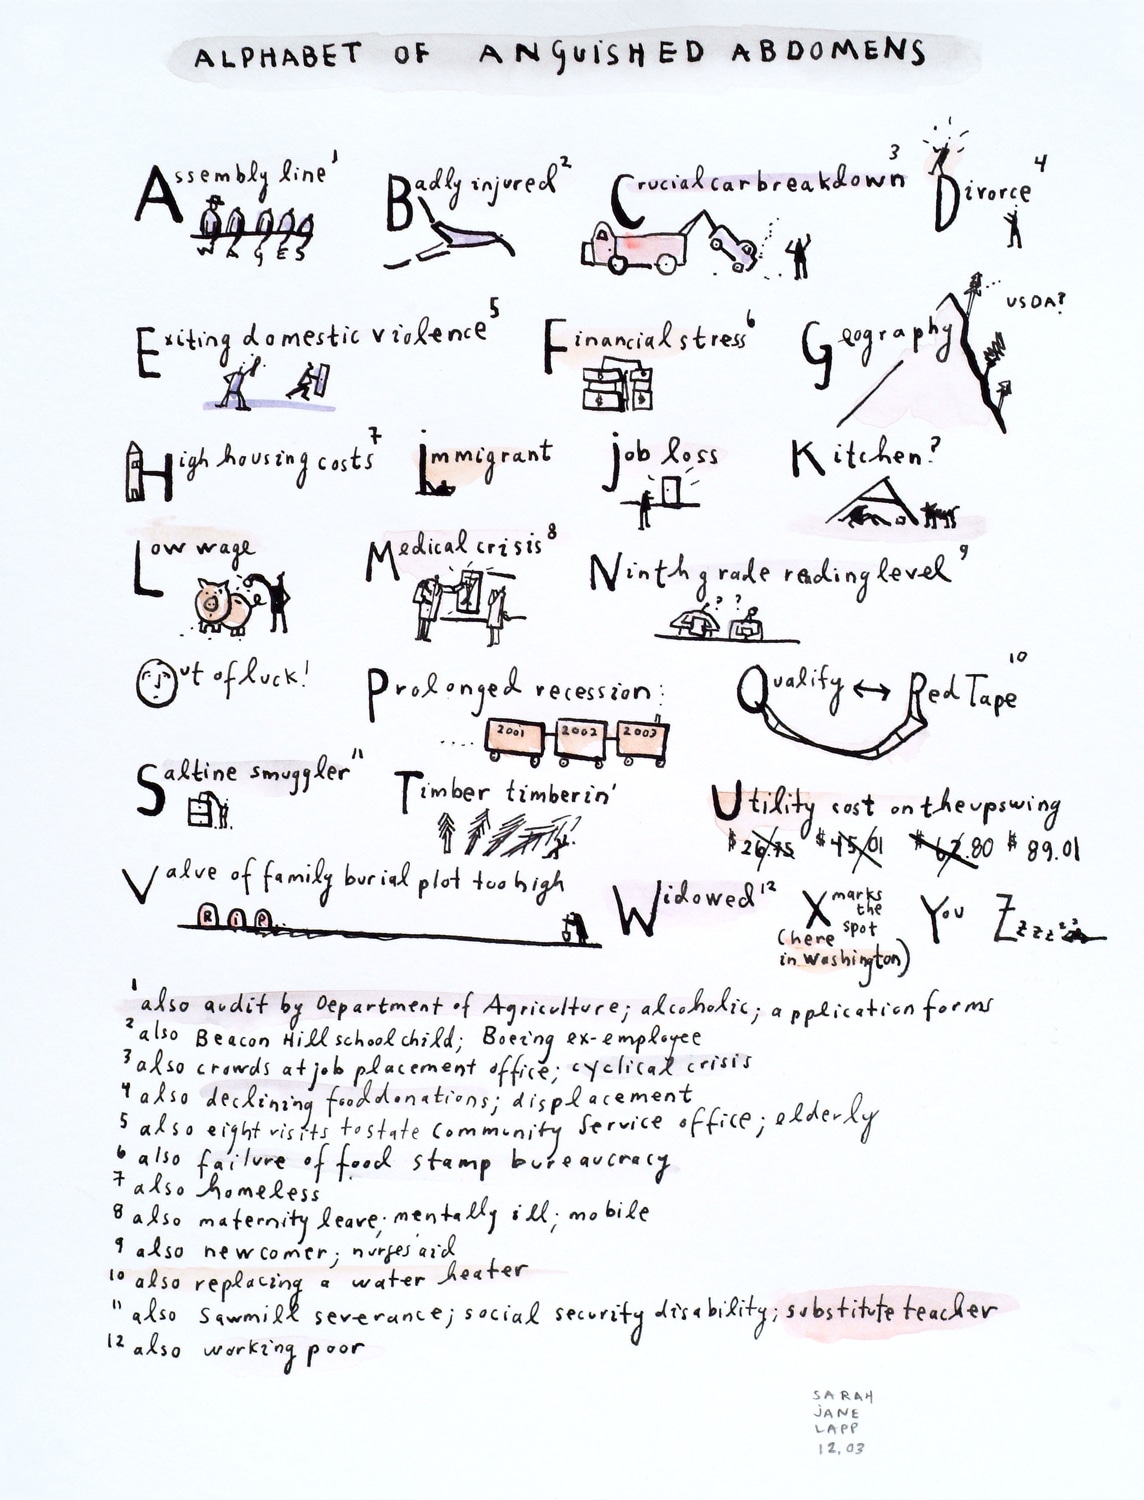 ALPHABET OF ANGUISHED ABDOMENS
Assembly line¹
WAGES
Badly injured²
Crucial car breakdown³
Divorce⁴
Exiting domestic violence⁵
Financial stress⁶
Geography
USDA?
High housing costs⁷
immigrant
job loss
Kitchen?
Low wage
Medical crisis⁸
Ninth grade reading level⁹
Out of luck!
Prolonged recession:
2001 2002 2003
Qualify ↔ Red Tape¹⁰
Saltine smuggler¹¹
Timber timberin'
Utility cost on the upswing
$26.75 $45.01 $67.80 $89.01
Value of family burial plot too high
RiP
Widowed¹²
X marks
the
spot
(here
in Washington)
You
Zzzzzz
¹also audit by Department of Agriculture; alcoholic; application forms
²also Beacon Hill schoolchild; Boeing ex-employee
³also crowds at job placement office; cyclical crisis
⁴also declining food donations; displacement
⁵also eight visits to state Community Service office; elderly
⁶also failure of food stamp bureaucracy
⁷also homeless
⁸also maternity leave; mentally ill; mobile
⁹also newcomer; nurses' aid
¹⁰also replacing a water heater
¹¹also sawmill severance; social security disability; substitute teacher
¹²also working poor
SARAH
JANE
LAPP
12,03